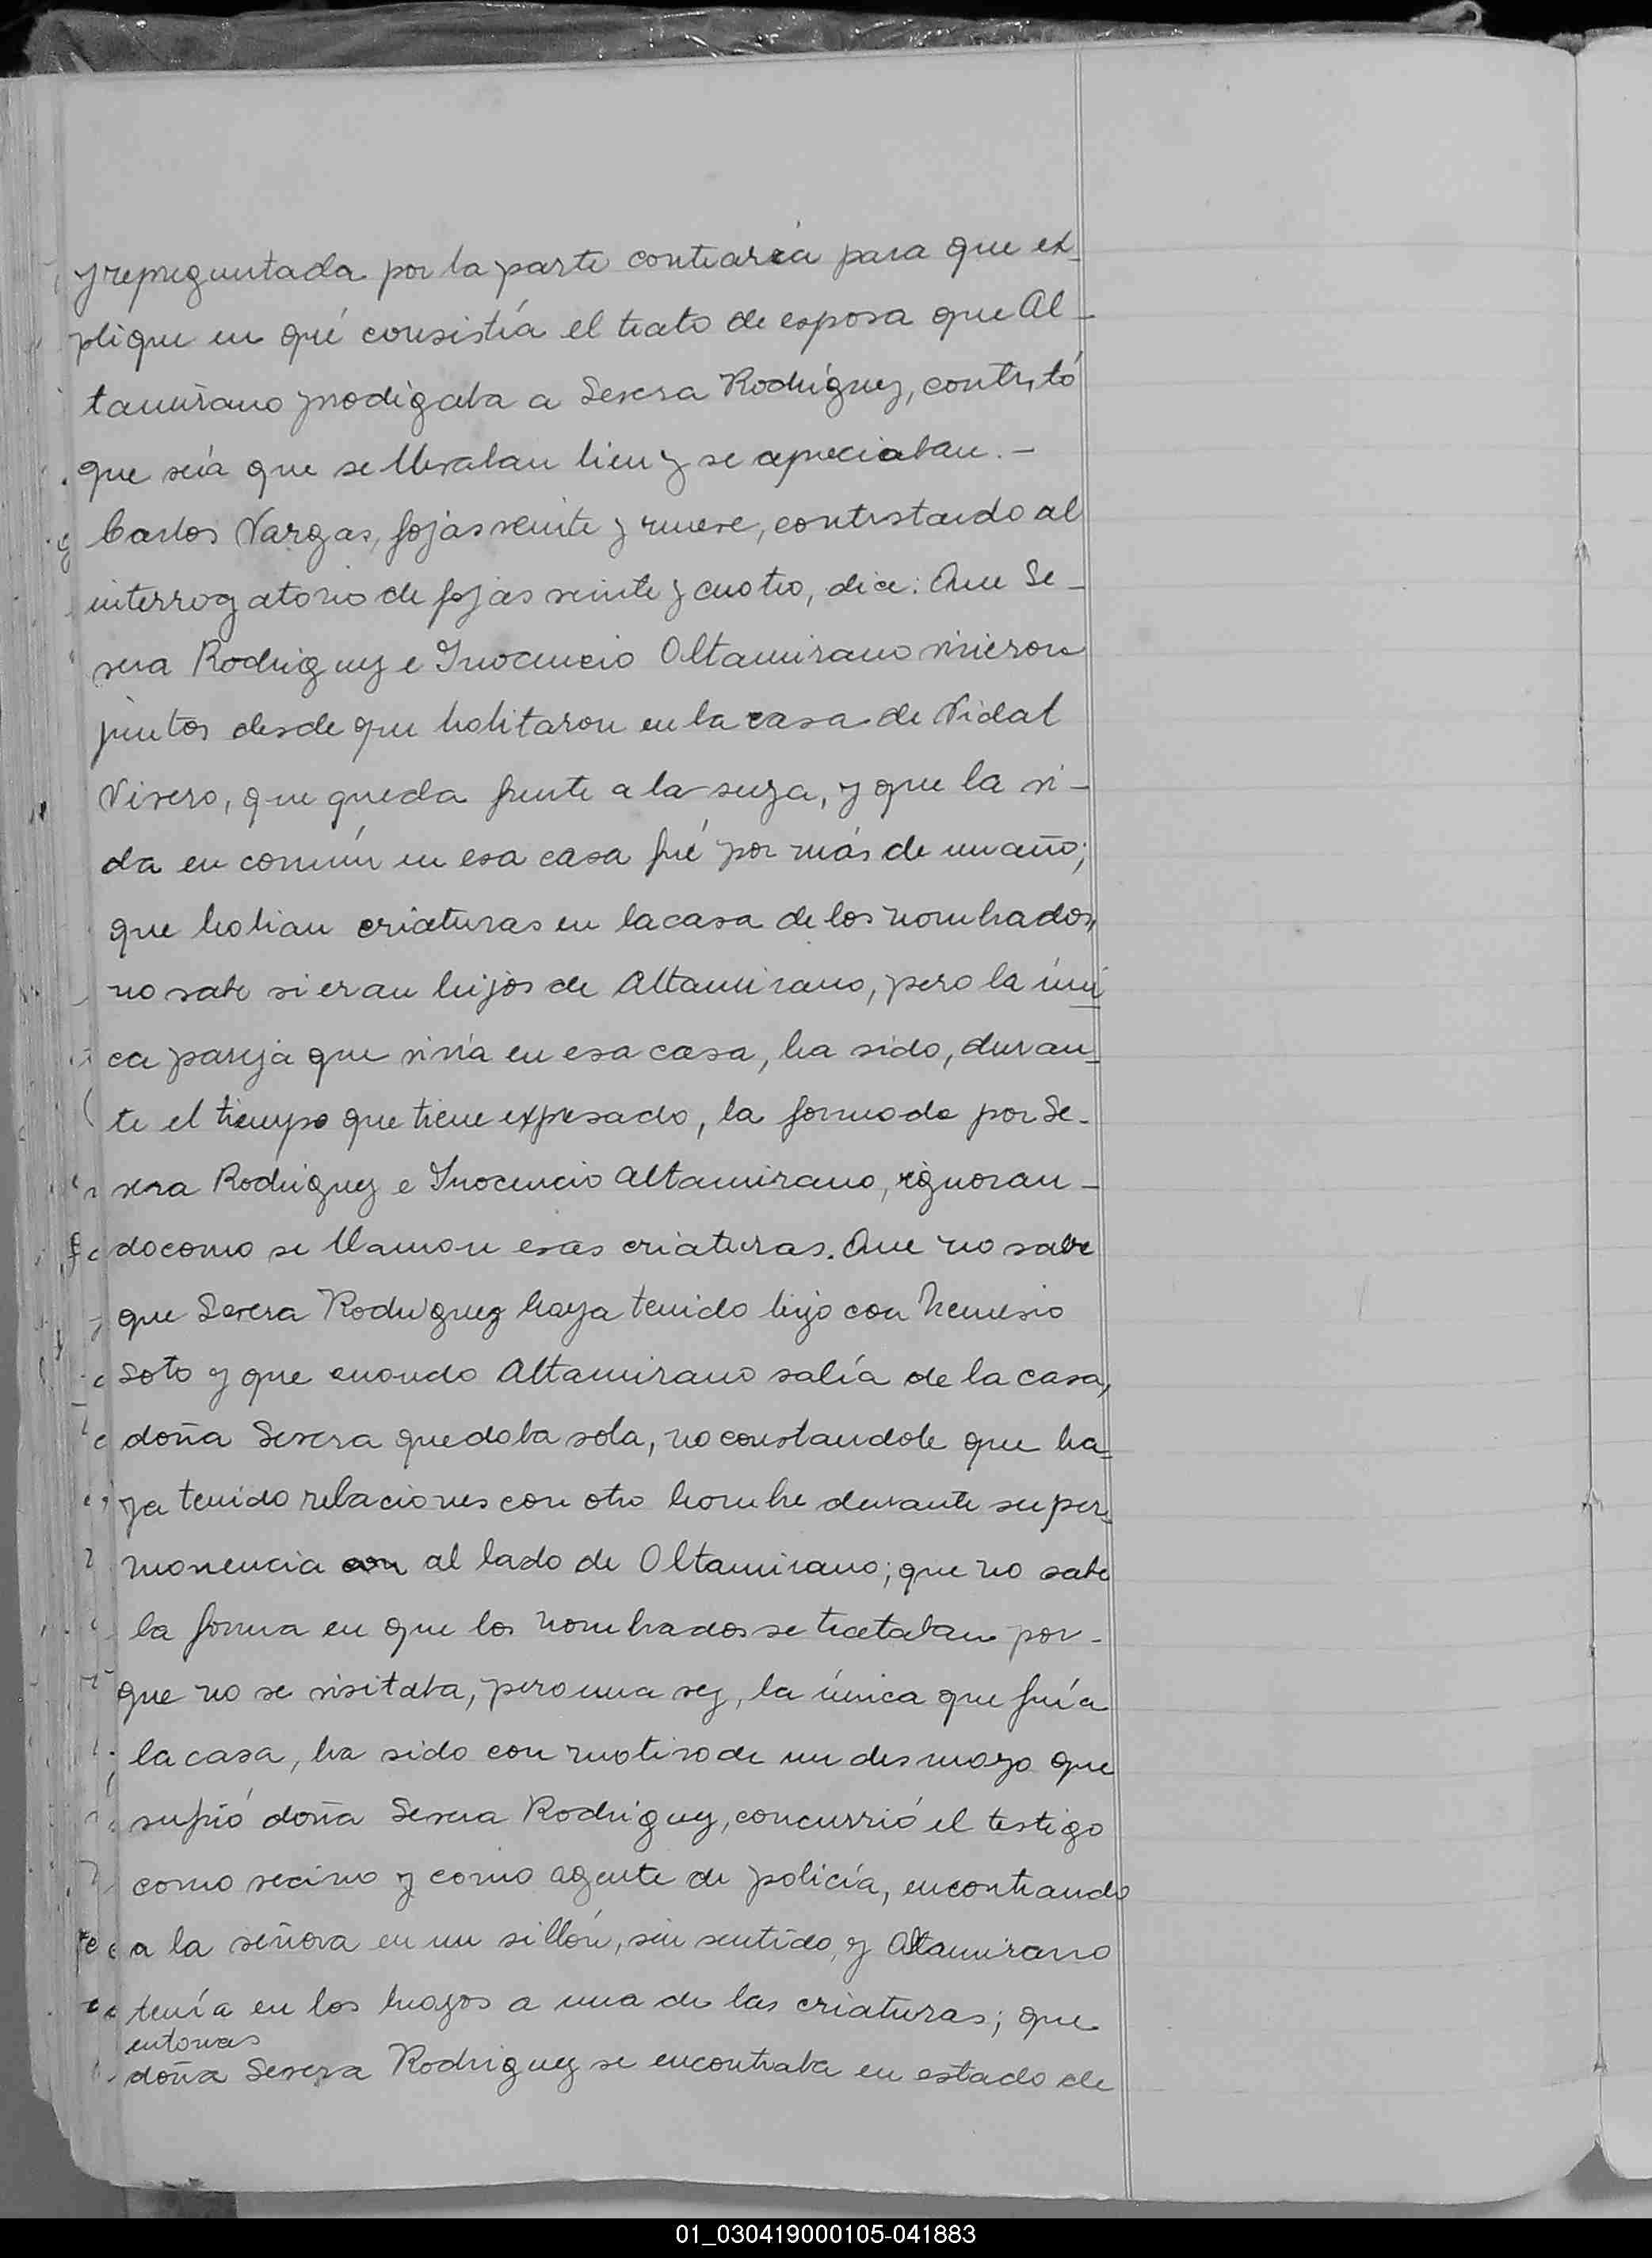 y repreguntada por la parte contraria para que ex-
plique en qué consistía el trato de esposa que Al-
tamirano prodigaba a Severa Rodríguez, contestó
que sería que se llevaban bien y se apreciaban.-
Carlos Vargas, fojas veinte y nueve, contestando al
interrogatorio de fojas veinte y cuatro, dice: Que Se-
vera Rodriguez e Inocencio Altamirano vivieron
juntos desde que habitaron en la casa de Vidal
Vivero, que queda frente a la suya, y que la vi-
da en común en esa casa fué por más de un año;
que habían criaturas en la casa de los nombrados,
no sabe si eran hijos de Altamirano, pero la úni
ca pareja que vivía en esa casa, ha sido, duran-
te el tiempo que tiene expresado, la formada por Se-
vera Rodriguez e Inocencio Altamirano, ignoran-
do como se llamon esas criaturas. Que no sabe
que Severa Rodriguez haya tenido hijo con Nemesio
Soto y que cuando Altamirano salía de la casa,
doña Severa quedaba sola, no constandole que ha-
ya tenido relaciones con otro hombre durante su per-
manencia al lado de Altamirano; que no sabe
la forma en que los nombrados se trataban por-
que no se visitaba, pero una vez, la única que fué a
la casa, ha sido con motivo de un desmayo que
sufrió doña Severa Rodriguez, concurrió el testigo
como vecino y como agente de policía, encontrando
a la señora en un sillón, sin sentido, y Altamirano
tenía en los brazos a una de las criaturas; que
entonces
doña Severa Rodriguez se encontraba en estado de
01_030419000105-041883